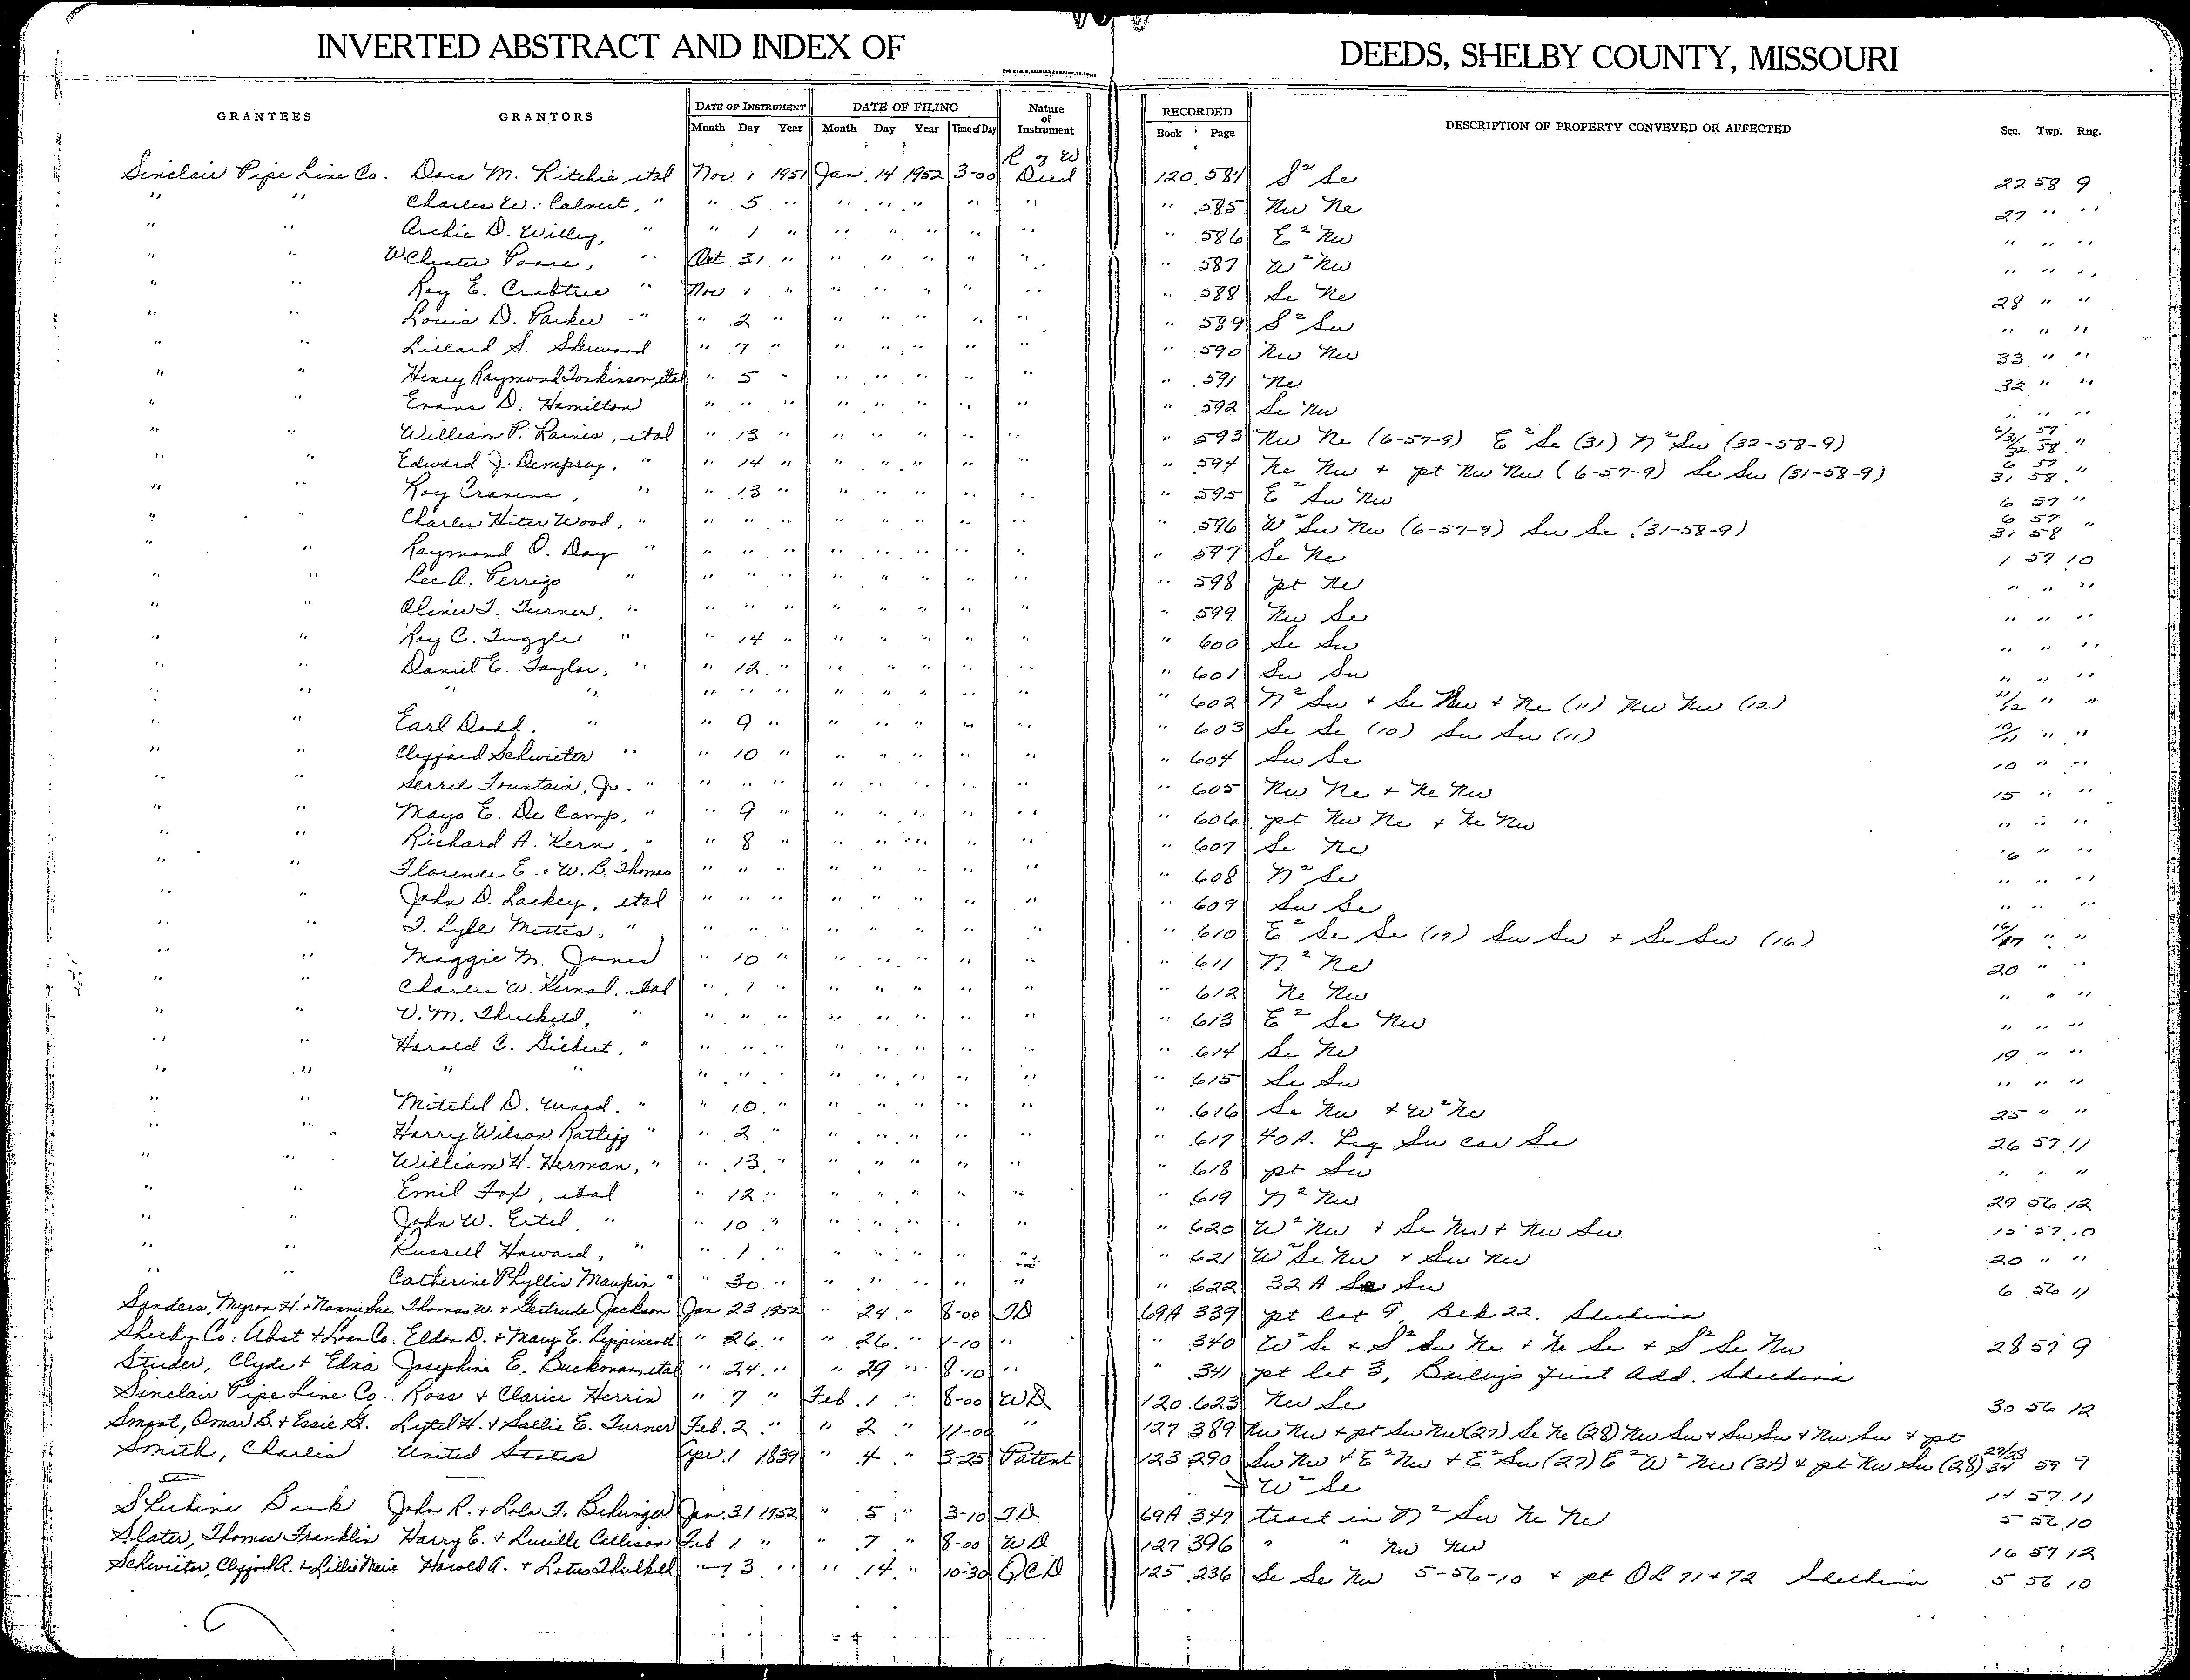 INVERTED ABSTRACT AND INDEX OF DEEDS, SHELBY COUNTY, MISSOURI
GRANTEES GRANTORS DATE OF INSTRUMENT DATE OF FILING Nature of Instrument RECORDED DESCRIPTION OF PROPERTY CONVEYED OR AFFECTED Sec. Twp. Rng.
Month Day Year Month Day Year Time of Day Book Page
R of W
Sinclair Pipe Line Co. Dora M. Ritchie, etal Nov. 1 1951 Jan. 14 1952 3-00 Deed 120 584 S² Se 22 58 9
" " Charles W. Calvert, " " 5 " " " " " " " 585 Nw Ne 27 " "
" " Archie D. Willey, " " 1 " " " " " " " 586 E² Nw " " "
" " W Chester Poore, " Oct 31 " " " " " " " 587 W² Nw " " "
" " Roy E. Crabtree " Nov. 1 " " " " " " " 588 Se Ne 28 " "
" " Louis D. Parker " " 2 " " " " " " " 589 S² Sw " " "
" " Lillard S. Sherwood " 7 " " " " " " " 590 Nw Nw 33 " "
" " Henry Raymond Tonkinson, etal " 5 " " " " " " " 591 Ne 32 " "
" " Evans D. Hamilton " " " " " " " " " 592 Se Nw " " "
" " William P. Raines, etal " 13 " " " " " " " 593 Nw Ne (6-57-9) E² Se (31) N² Sw (32-58-9) 6/31/32 57 58 "
" " Edward J. Dempsey, " " 14 " " " " " " " 594 Ne Nw + pt Nw Nw (6-57-9) Se Sw (31-58-9) 6 57 31 58 "
" " Roy Cravens, " " 13 " " " " " " " 595 E² Sw Nw 6 57 "
" " Charles Hiter Wood, " " " " " " " " " " 596 W² Sw Nw (6-57-9) Sw Se (31-58-9) 6 57 31 58 "
" " Raymond O. Day " " " " " " " " " " 597 Se Ne 1 57 10
" " Lee A. Perrigo " " " " " " " " " " 598 pt Ne " " "
" " Oliver T. Turner, " " " " " " " " " " 599 Nw Se " " "
" " Roy C. Tuggle " " 14 " " " " " " " 600 Se Sw " " "
" " Daniel E. Taylor, " " 12 " " " " " " " 601 Sw Sw " " "
" " " " " " " " " " " " " 602 N² Sw + Se Nw + Ne (11) Nw Nw (12) 11/12 " "
" " Earl Dodd, " " 9 " " " " " " " 603 Se Se (10) Sw Sw (11) 10/11 " "
" " Clifford Schwieter " " 10 " " " " " " " 604 Sw Se 10 " "
" " Serrel Fountain, Jr. " " " " " " " " " " 605 Nw Ne + Ne Nw 15 " "
" " Mayo E. De Camp, " " 9 " " " " " " " 606 pt Nw Ne + Ne Nw " " "
" " Richard A. Kern, " " 8 " " " " " " " 607 Se Ne 16 " "
" " Florence E. + W. B. Thomas " " " " " " " " " 608 N² Se " " "
" " John D. Lackey, etal " " " " " " " " " 609 Sw Se " " "
" " T. Lyle Mettes, " " " " " " " " " " 610 E² Se Se (17) Sw Sw + Se Sw (16) 16/17 " "
" " Maggie M. Janes " 10 " " " " " " " 611 N² Ne 20 " "
" " Charles W. Kernal, etal " 1 " " " " " " " 612 Ne Nw " " "
" " V. M. Threlkeld, " " " " " " " " " " 613 E² Se Nw " " "
" " Harold C. Giebert, " " " " " " " " " " 614 Se Ne 19 " "
" " " " " " " " " " " " " 615 Se Sw " " "
" " Mitchel D. Wood, " " 10 " " " " " " " 616 Se Nw + W² Ne 25 " "
" " Harry Wilson Ratliff " " 2 " " " " " " " 617 40 A. beg Sw cor Se 26 57 11
" " William H. Herman, " " 13 " " " " " " " 618 pt Sw " " "
" " Emil Fox, etal " 12 " " " " " " " 619 N² Nw 29 56 12
" " John W. Ertel, " " 10 " " " " " " " 620 W² Nw + Se Nw + Nw Sw 15 57 10
" " Russell Howard, " " 1 " " " " " " " 621 W² Se Nw + Sw Nw 20 " "
" " Catherine Phyllis Maupin " " 30 " " " " " " " 622 32 A Se Sw 6 56 11
Sanders, Myron H. + Nannie Sue Thomas W. + Gertrude Jackson Jan 23 1952 " 24 " 8-00 TD 69A 339 pt lot 9, Blk 22, Shelbina
Shelby Co. Abst + Loan Co. Eldon D. + Mary E. Lippincott " 26 " " 26 " 1-10 " " 340 W² Se + S² Sw Ne + Ne Se + S² Se Nw 28 57 9
Studer, Clyde + Edna Josephine E. Buckman, etal " 24 " " 29 " 8-10 " " 341 pt lot 3, Bailey's First Add. Shelbina
Sinclair Pipe Line Co. Ross + Clarice Herrin " 7 " Feb. 1 " 8-00 WD 120 623 Nw Se 30 56 12
Smart, Omar B. + Essie G. Lytel H. + Sallie E. Turner Feb. 2 " " 2 " 11-00 " 127 389 Nw Nw + pt Sw Nw (27) Se Ne (28) Nw Sw + Sw Sw + Nw Sw + pt
Smith, Charles United States Apr. 1 1839 " 4 " 3-25 Patent 123 290 Sw Nw + E² Nw + E² Sw (27) E² W² Nw (34) + pt Nw Sw (28) 27/28 34 59 9
W² Se 14 57 11
Shelbina Bank John R. + Lola F. Behringer Jan. 31 1952 " 5 " 3-10 TD 69A 347 tract in N² Sw Ne Ne 5 56 10
Slater, Thomas Franklin Harry E. + Lucille Collison Feb. 1 " " 7 " 8-00 WD 127 396 " " Nw Nw 16 57 12
Schwieter, Clifford A. + Lillie Marie Harold A. + Lotus Threlkeld " 3 " " 14 " 10-30 QCD 125 236 Se Se Nw 5-56-10 + pt OL 71 + 72 Shelbina 5 56 10